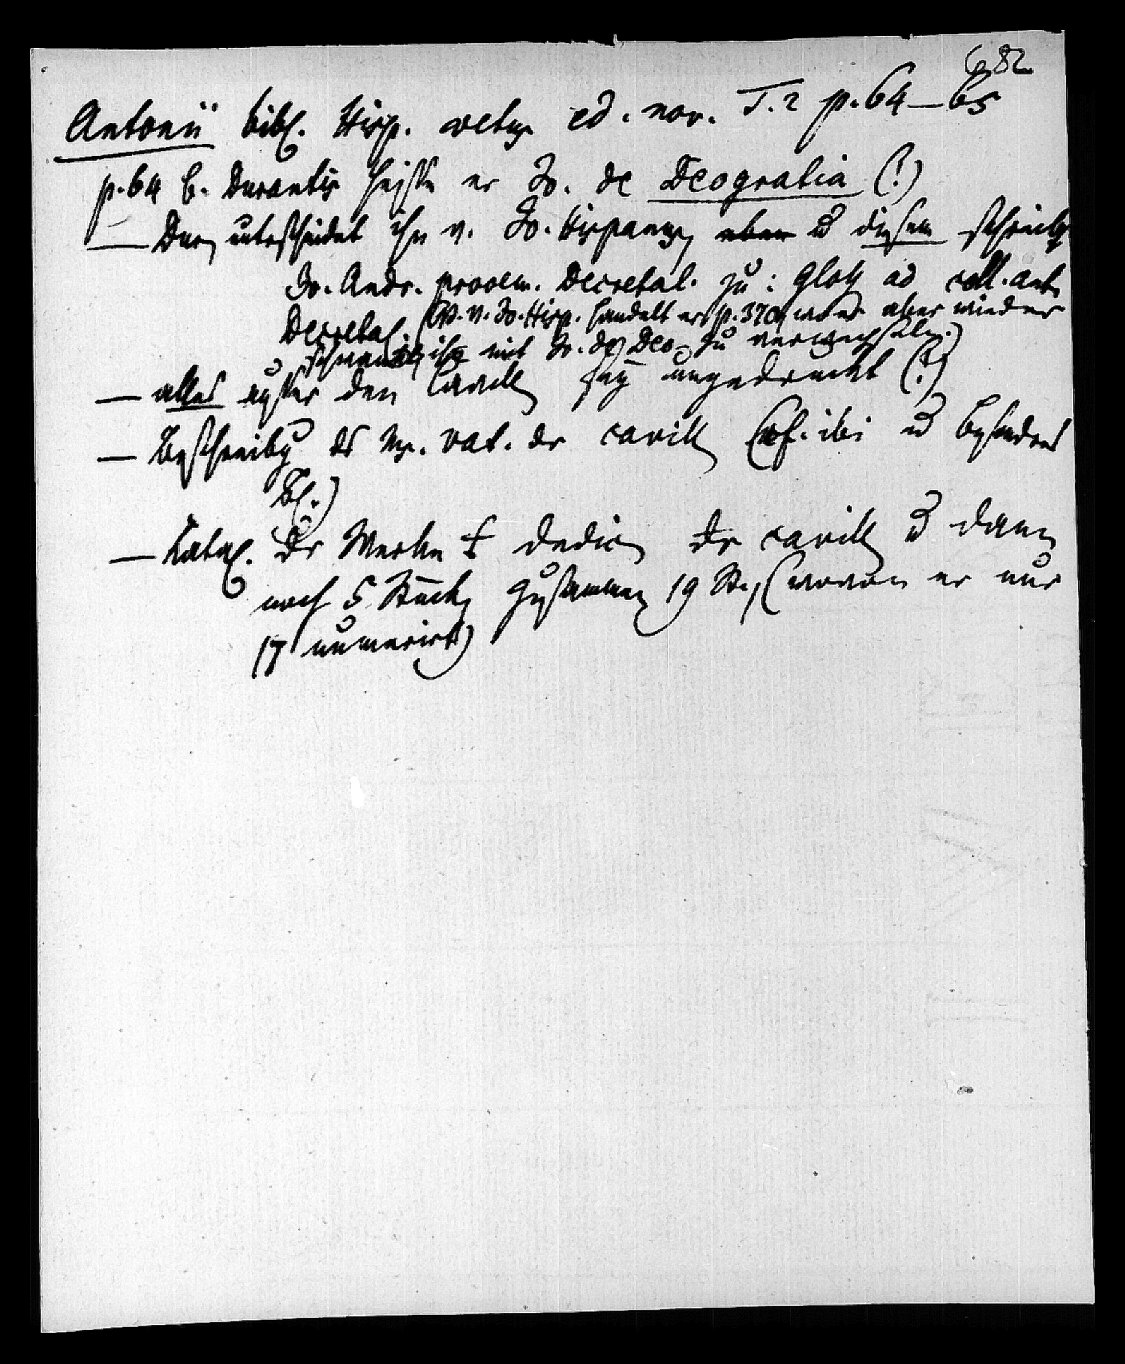 682
Antonii bibl. Hisp. vetus ed. nov. T. 2 p. 64–65
p. 64 b. Durantis heiße er Jo. de Deogratia (?)
— Dur. unterscheidet ihn v. Jo. Hispanus, aber u diesem schreibe
Jo. Andr. prooem. Decretal. zu: Gloss. ad coll. ant.
Decretal. (V. Jo. Hisp. handelt er p. 370, wo er aber wieder
ihn mit Jo. de Deo zu verwechseln.)
— alles außer den Cavill. sey ungedruckt (?)
— Beschreibg ds Ms. Vat. der cavill. (cf. ibi u besondres
Bl.)
— Katal. der Werke + dedic. der cavill. u dann
noch 5 Stücke, zusammen 19 St., (wovon er nur
17 numerirt)